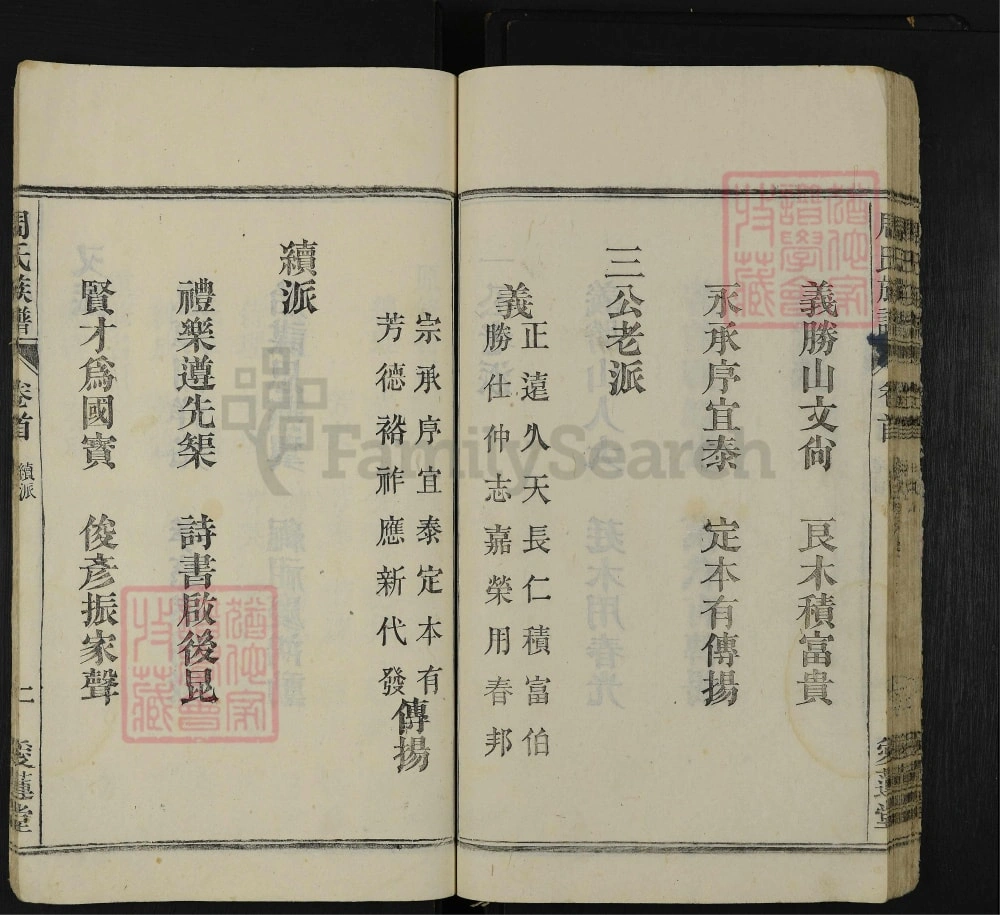 周氏族譜 卷首 愛蓮堂
義勝山文尙 艮木積富貴
永承序宜泰 定本有傳揚
三公老派
義
正遠久天長仁積富伯
勝仕仲志嘉榮用春邦
宗承序宜泰定本有
芳德裕祚應新代發
傳揚
續派
禮樂遵先榘 詩書啟後昆
賢才爲國寶 俊彥振家聲
周氏族譜 卷首 續派 二 愛蓮堂
FamilySearch